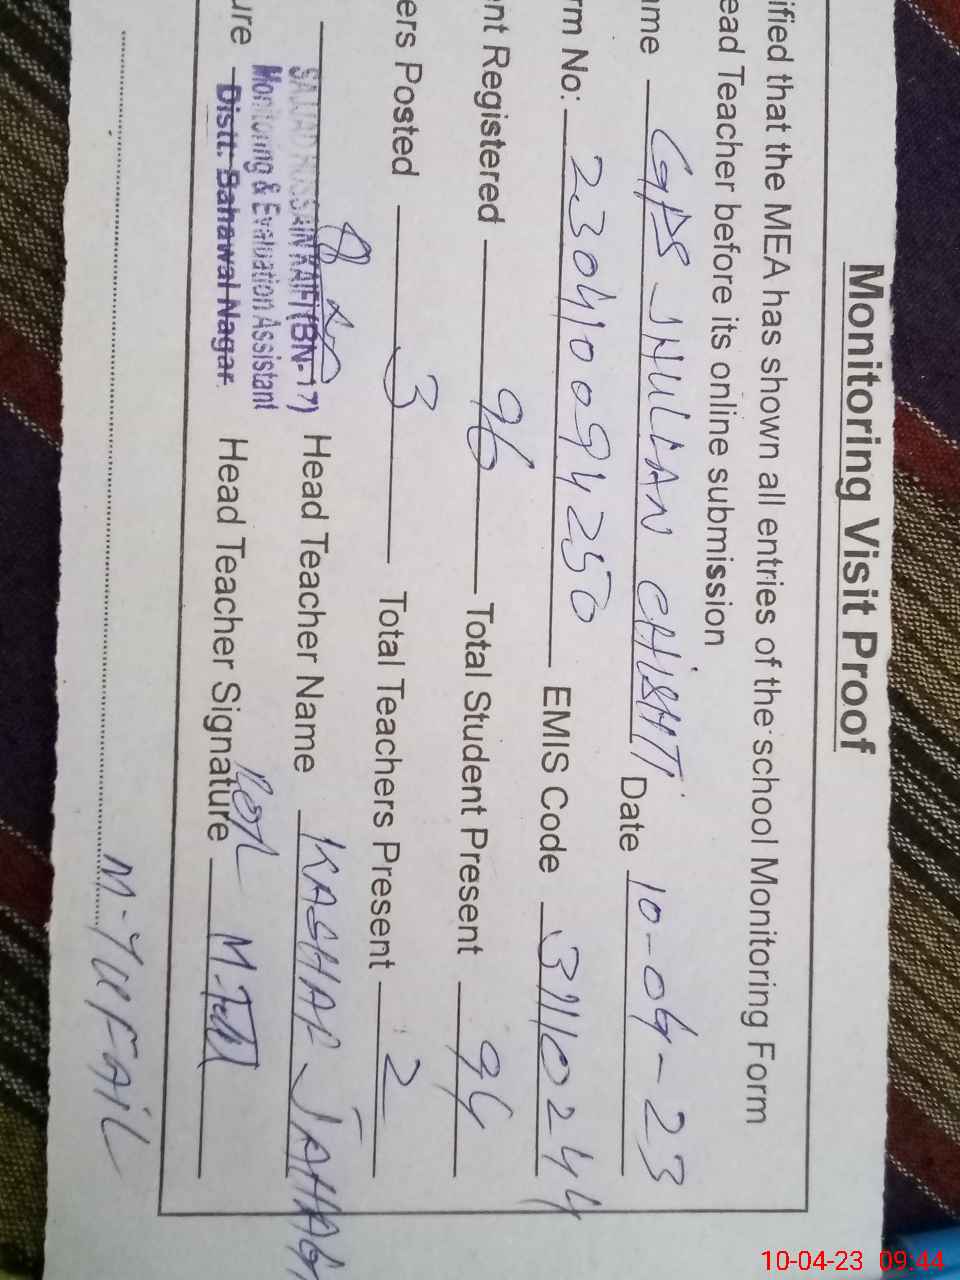 Monitoring Visit Proof
ified that the MEA has shown all entries of the school Monitoring Form
ead Teacher before its online submission
ame GPS JHULLAN CHISHTI Date 10-04-23
rm No: 230410094250 EMIS Code 31110244
nt Registered 96 Total Student Present 94
ers Posted 3 Total Teachers Present 2
SAJJAD HUSSAIN KAIFI (BN-17) Head Teacher Name KASHAF JAHAG
Monitoring & Evaluation Assistant
ure Distt: Bahawal Nagar. Head Teacher Signature
M-TUFAIL
10-04-23 09:44